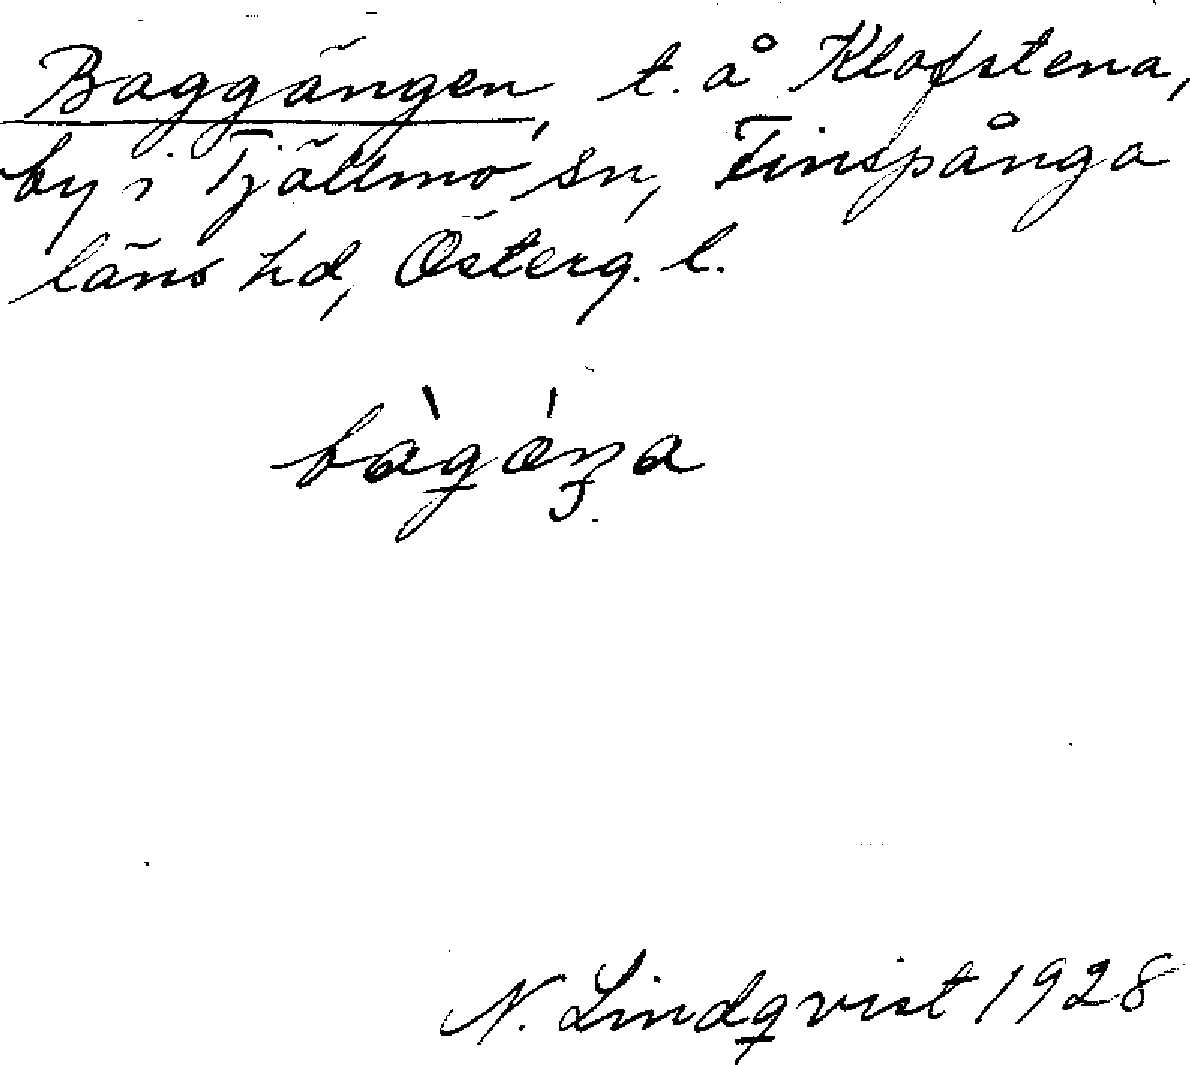 Baggängen, t. å Klofstena,
by i Tjällmo sn, Finspånga
läns hd, Österg. l.
N. Lindqvist 1928